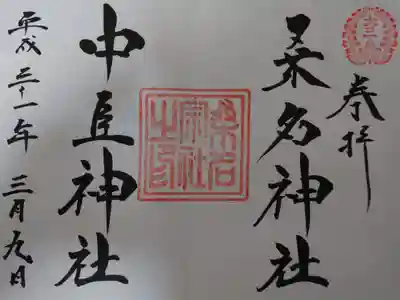 奉拝
桑名神社
桑名宗社之印
中臣神社
平成三十一年 三月九日